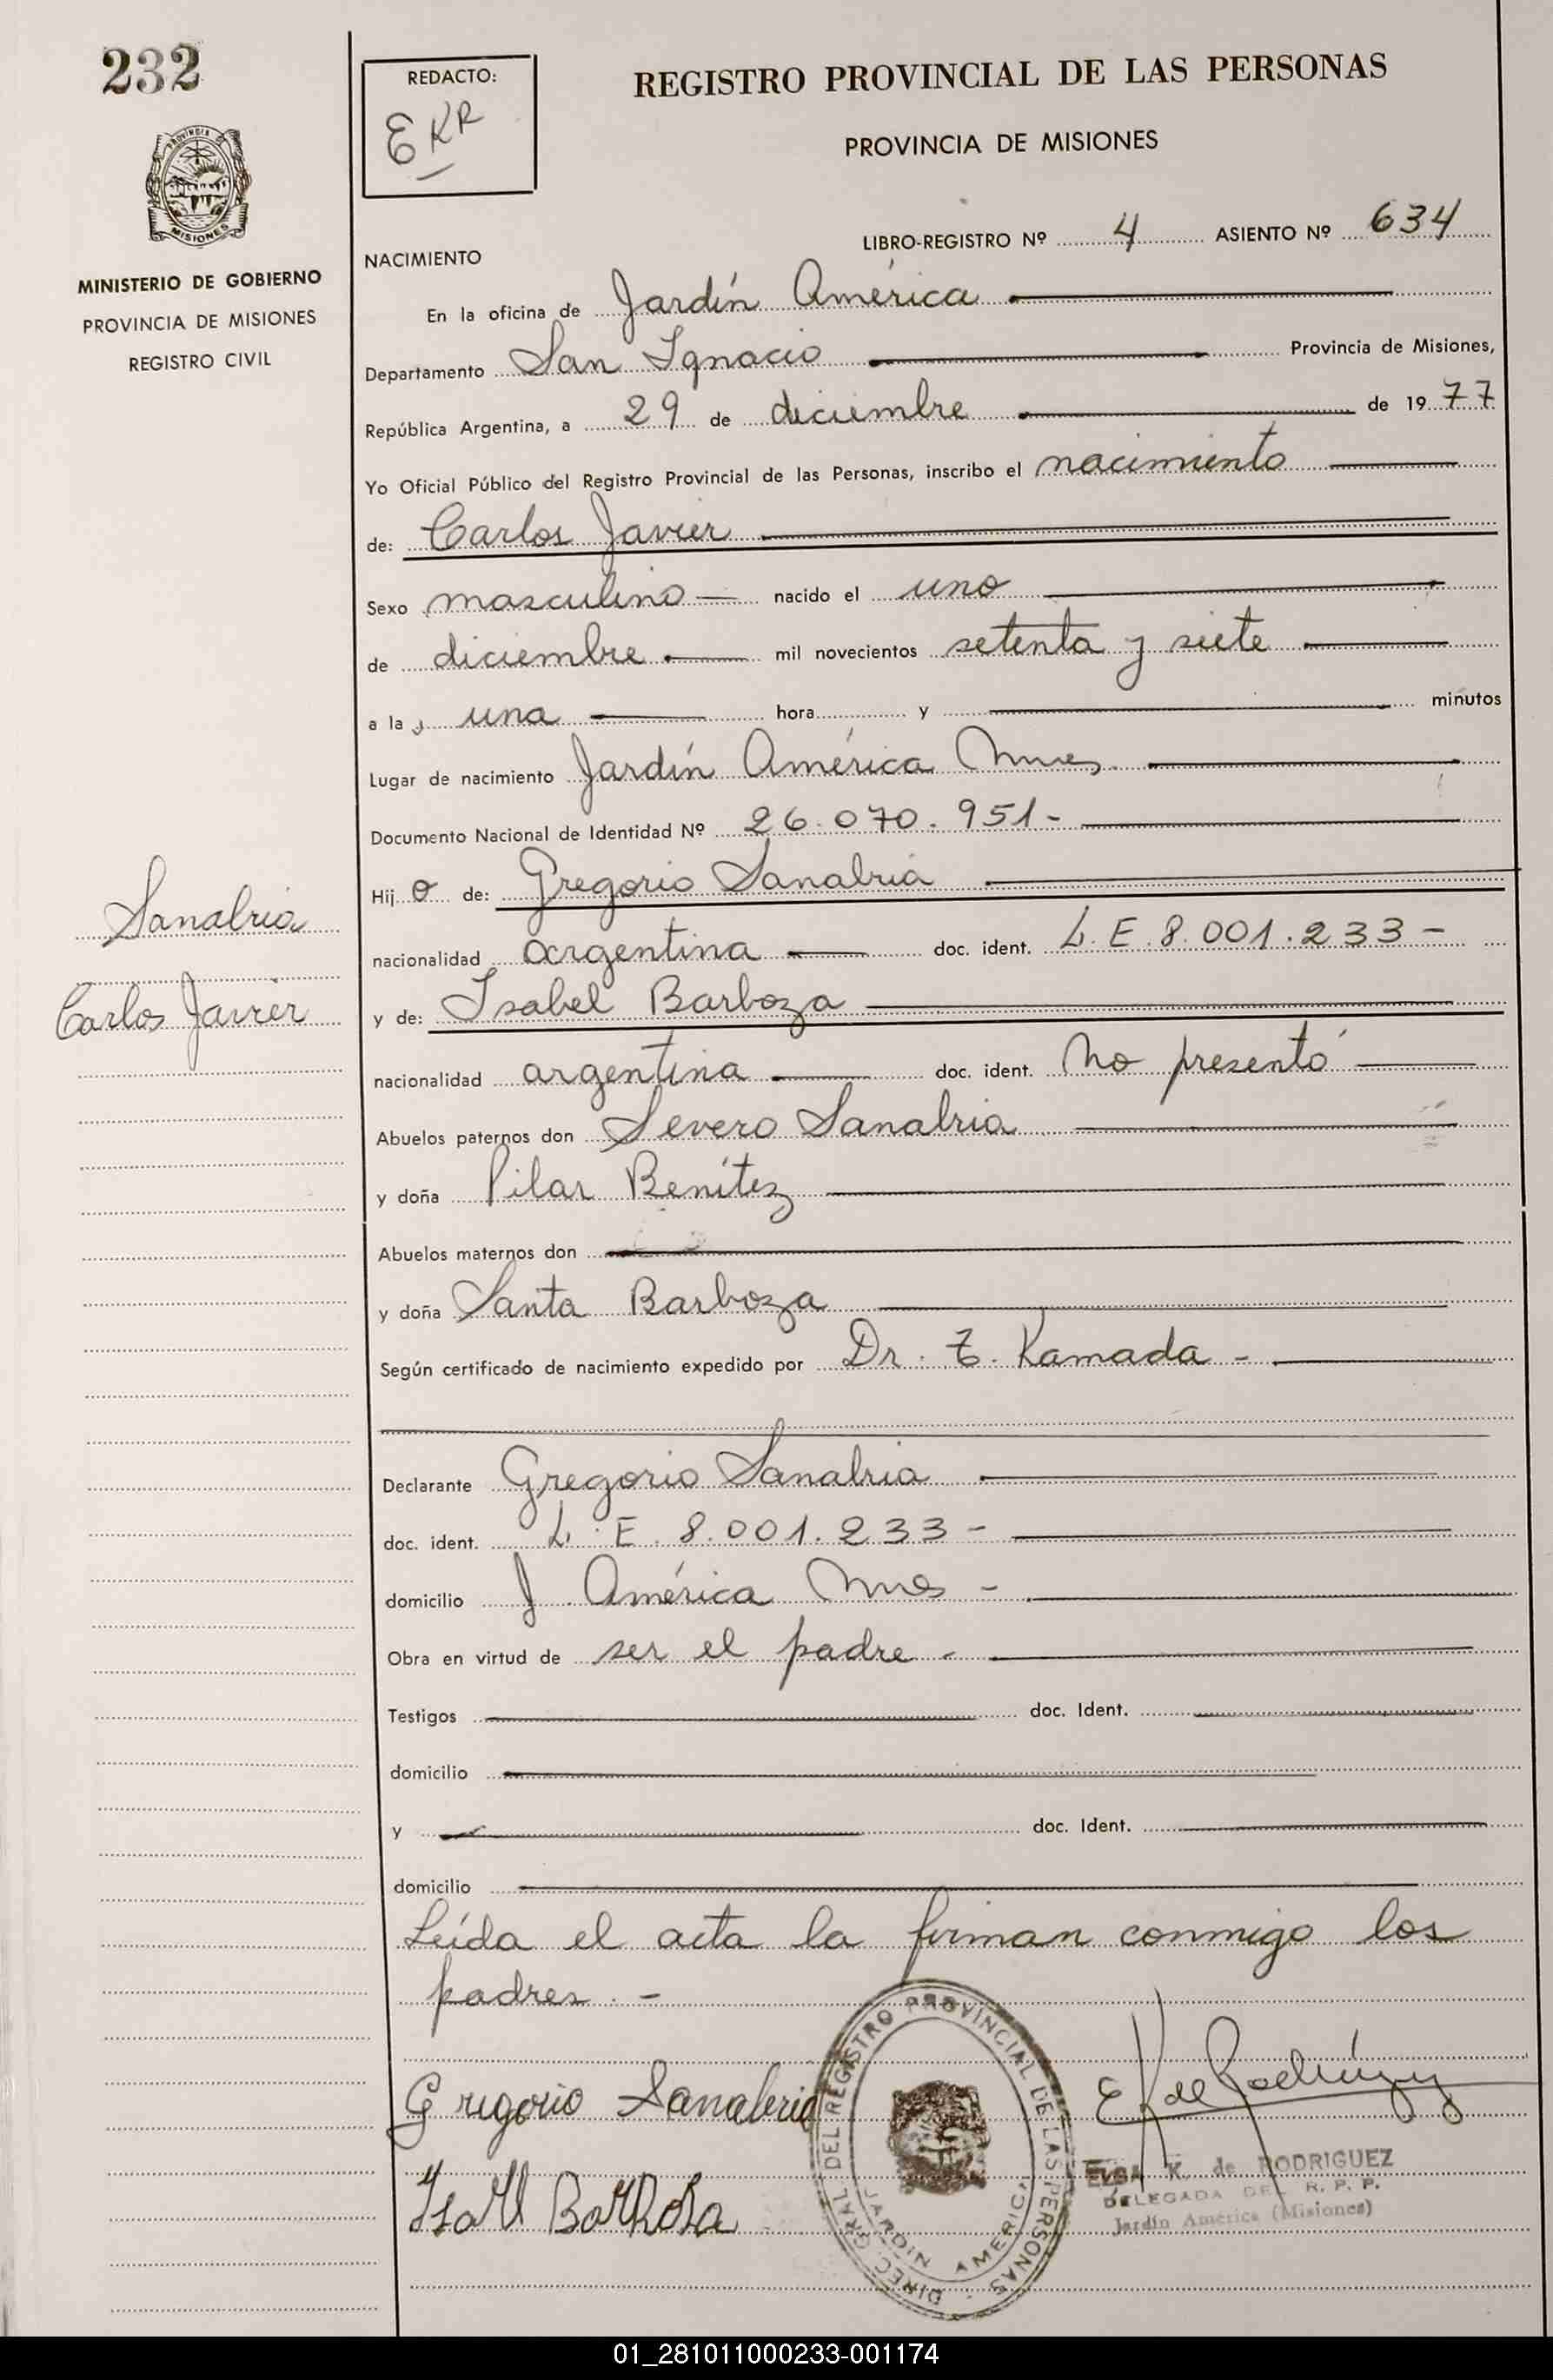 232
REDACTO:
EKR
REGISTRO PROVINCIAL DE LAS PERSONAS
PROVINCIA DE MISIONES
PROVINCIA
MISIONES
MINISTERIO DE GOBIERNO
PROVINCIA DE MISIONES
REGISTRO CIVIL
LIBRO-REGISTRO Nº 4 ASIENTO Nº 634
NACIMIENTO
En la oficina de Jardín América
Departamento San Ignacio Provincia de Misiones,
República Argentina, a 29 de diciembre de 1977
Yo Oficial Público del Registro Provincial de las Personas, inscribo el nacimiento
de: Carlos Javier
Sexo masculino nacido el uno
de diciembre mil novecientos setenta y siete
a la una hora y minutos
Lugar de nacimiento Jardín América Mnes
Documento Nacional de Identidad Nº 26.070.951-
Hijo de: Gregorio Sanabria
Sanabria
nacionalidad argentina doc. ident. L.E. 8.001.233-
Carlos Javier
y de: Isabel Barboza
nacionalidad argentina doc. ident. No presentó
Abuelos paternos don Severo Sanabria
y doña Pilar Benítez
Abuelos maternos don
y doña Santa Barboza
Según certificado de nacimiento expedido por Dr. T. Kamada -
Declarante Gregorio Sanabria
doc. ident. L.E. 8.001.233-
domicilio J América Mnes -
Obra en virtud de ser el padre -
Testigos doc. Ident.
domicilio
y doc. Ident.
domicilio
Leída el acta la firman conmigo los
padres. -
Gregorio Sanabria
Isabel Barbosa
DIREC. GRAL. DEL REGISTRO PROVINCIAL DE LAS PERSONAS
JARDIN AMERICA
E K de Rodríguez
ELSA K. de RODRIGUEZ
DELEGADA DEL R. P. P.
Jardín América (Misiones)
01_281011000233-001174